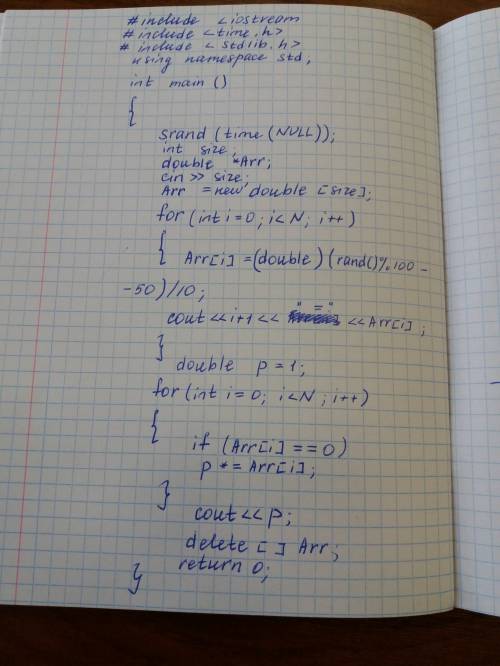 #include <iostream
#include <time.h>
#include <stdlib.h>
using namespace std;
int main ()
{
srand (time (NULL));
int size;
double *Arr;
cin >> size;
Arr = new double [size];
for (int i = 0; i < N; i++)
{ Arr[i] = (double) (rand()%100 -
-50)/10;
cout << i+1 << " = " << Arr[i];
}
double p = 1;
for (int i = 0; i < N; i++)
{
if (Arr[i] == 0)
p *= Arr[i];
}
cout << p;
delete [ ] Arr;
return 0;
}